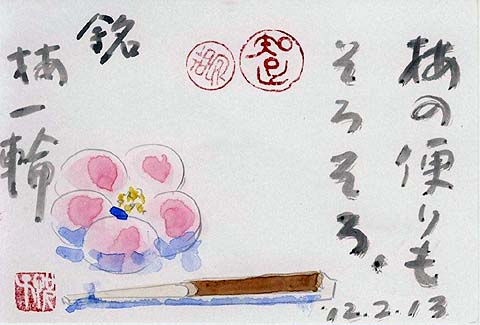 梅の便りも
そろそろ、
'12.2.13
銘
梅一輪